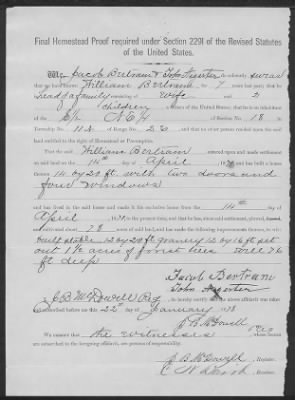 Final Homestead Proof required under Section 2291 of the Revised Statutes
of the United States.
We, Jacob Bertram & John do solemnly swear
that we have known William Bertram for 7 years last past; that he
head of a family consisting of wife and 2
children of the United States; that he is an inhabitant
of the E/2 NE4 of Section No. 18 in
Township No. 11 N of Range No. 2 E and that no other person resided upon the said
land entitled to the right of Homestead or Pre-emption.
That the said William Bertram entered upon and made settlement
on said land on the 14th day of April, and has built a house
14 by 20 ft. with two doors and
four windows
and has lived in the said house and made it his exclusive home from the 14th day of
April to the present time, and that he has, since said settlement, plowed,
cultivated about 78 acres of land, and has made the following improvements thereon, to wit:
built stable 12 by 20 ft granery 12 by 16 ft set
out 1½ acres of forest trees well 76
ft deep
Jacob Bertram
John
I, J. B. McDowell Reg do hereby certify that the above affidavit was taken
and subscribed before me this 22 day of January 1878
J. B. McDowell
Reg
We certify that the witnesses whose names
are subscribed to the foregoing affidavit, are persons of respectability.
J. B. McDowell, Register.
, Receiver.